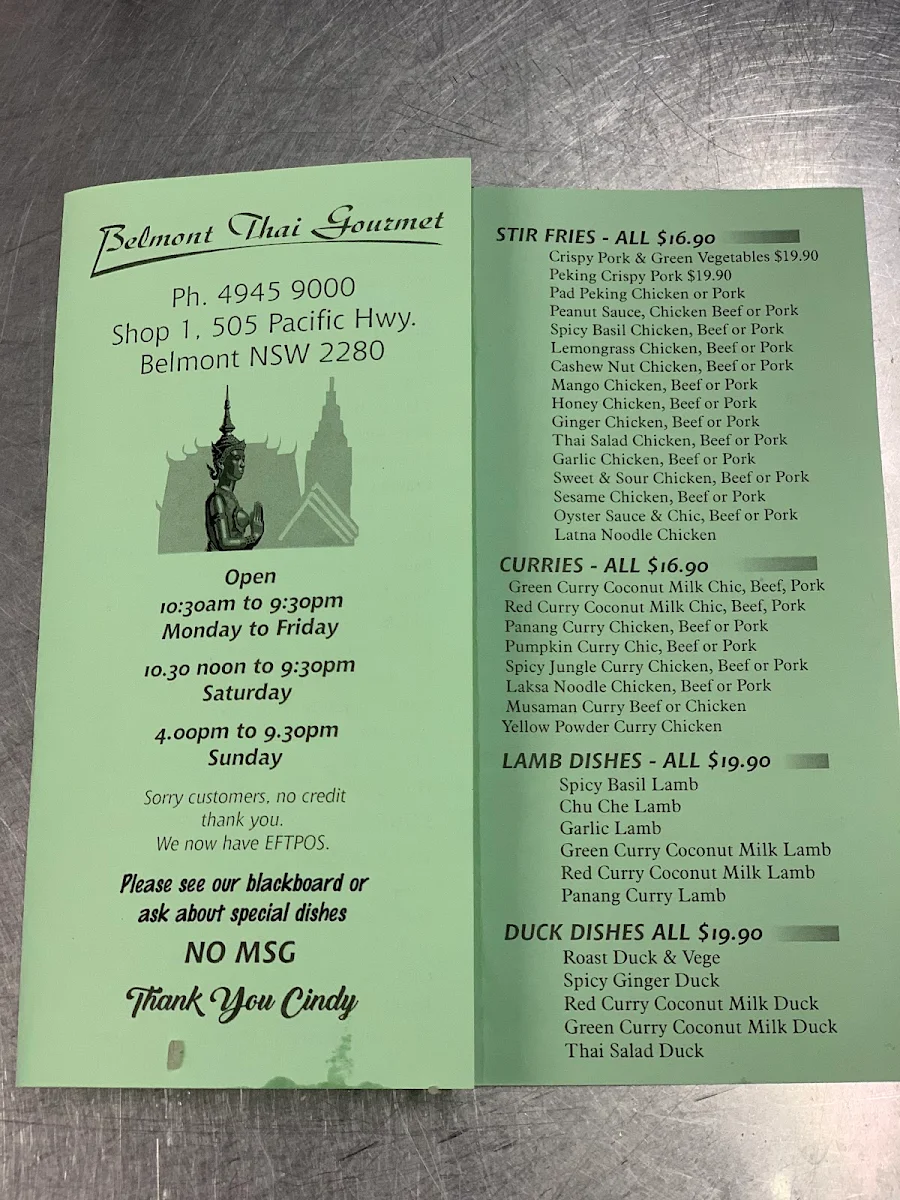 Belmont Thai Gourmet
Ph. 4945 9000
Shop 1, 505 Pacific Hwy.
Belmont NSW 2280
Open
10:30am to 9:30pm
Monday to Friday
10.30 noon to 9:30pm
Saturday
4.00pm to 9.30pm
Sunday
Sorry customers, no credit
thank you.
We now have EFTPOS.
Please see our blackboard or
ask about special dishes
NO MSG
Thank You Cindy
STIR FRIES - ALL $16.90
Crispy Pork & Green Vegetables $19.90
Peking Crispy Pork $19.90
Pad Peking Chicken or Pork
Peanut Sauce, Chicken Beef or Pork
Spicy Basil Chicken, Beef or Pork
Lemongrass Chicken, Beef or Pork
Cashew Nut Chicken, Beef or Pork
Mango Chicken, Beef or Pork
Honey Chicken, Beef or Pork
Ginger Chicken, Beef or Pork
Thai Salad Chicken, Beef or Pork
Garlic Chicken, Beef or Pork
Sweet & Sour Chicken, Beef or Pork
Sesame Chicken, Beef or Pork
Oyster Sauce & Chic, Beef or Pork
Latna Noodle Chicken
CURRIES - ALL $16.90
Green Curry Coconut Milk Chic, Beef, Pork
Red Curry Coconut Milk Chic, Beef, Pork
Panang Curry Chicken, Beef or Pork
Pumpkin Curry Chic, Beef or Pork
Spicy Jungle Curry Chicken, Beef or Pork
Laksa Noodle Chicken, Beef or Pork
Musaman Curry Beef or Chicken
Yellow Powder Curry Chicken
LAMB DISHES - ALL $19.90
Spicy Basil Lamb
Chu Che Lamb
Garlic Lamb
Green Curry Coconut Milk Lamb
Red Curry Coconut Milk Lamb
Panang Curry Lamb
DUCK DISHES ALL $19.90
Roast Duck & Vege
Spicy Ginger Duck
Red Curry Coconut Milk Duck
Green Curry Coconut Milk Duck
Thai Salad Duck